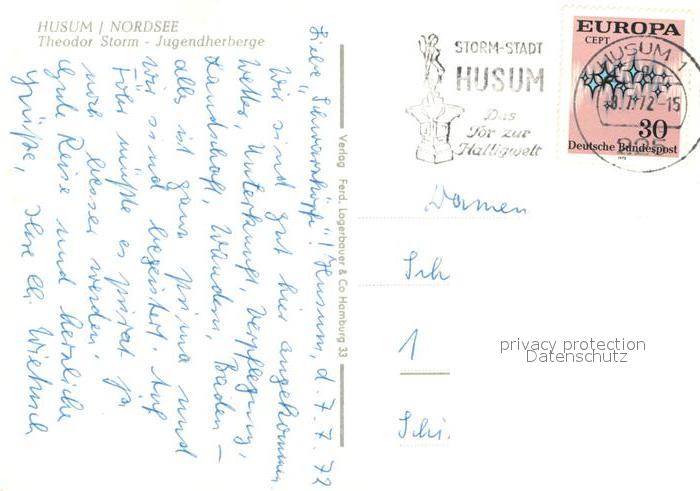 HUSUM / NORDSEE
Theodor Storm - Jugendherberge
Liebe "Schwarzköpfe"! Husum, d. 7.7.72
Wir sind gut hier angekommen.
Wetter, Unterkunft, Verpflegung,
Landschaft, Wandern, Baden –
alles ist ganz prima und
wir sind begeistert. Auf
Föhr müßte es privat ja
noch besser werden.
Gute Reise und herzliche
Grüße, Ihre
Verlag Ferd. Lagerbauer & Co Hamburg 33
STORM-STADT
HUSUM
Das
Tor zur
Halligwelt
EUROPA
CEPT
30
Deutsche Bundespost
1972
HUSUM 1
8.7.72-15
225
Damen
Sch
1
Schi
privacy protection
Datenschutz